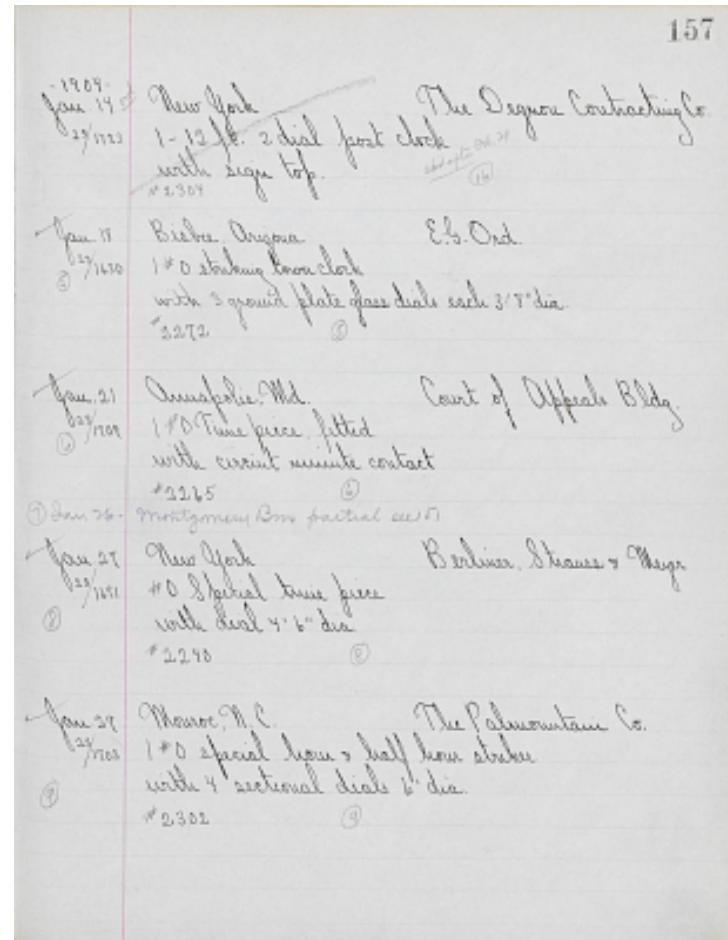 157
-1909-
Jan. 14 New York The Degnon Contracting Co.
1 - 12 ft. 2 dial post clock
with sign top.
#2304
Jan. 18 Bisbee, Arizona E.G. Ord.
1 #0 striking tower clock
with 3 ground plate glass dials each 3'8" dia.
#2272
5
Jan. 21 Annapolis, Md. Court of Appeals Bldg.
1 #0 Time piece, fitted
with circuit minute contact
#2265
6
7 Jan 26 - Montgomery Bros partial
Jan. 27 New York Berliner, Strauss & Meyer
#0 Special time piece
with dial 4'6" dia
#2290
8
Jan 29 Monroe, N.C. The Palmountain Co.
1 #0 special hour & half hour striker
with 4 sectional dials 6' dia.
#2302
9